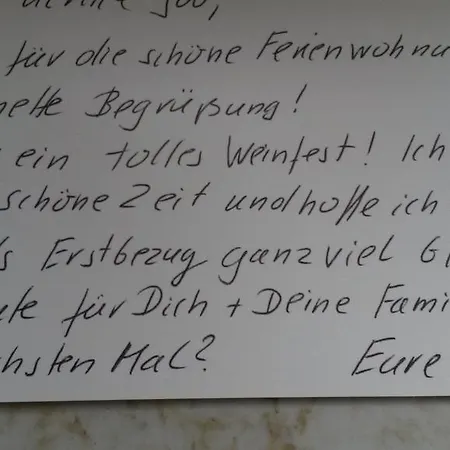 für die schöne Ferienwohnu
nette Begrüßung!
ein tolles Weinfest! Ich
schöne Zeit und hoffe ich
s Erstbezug ganz viel G
ute für Dich + Deine Fami
chsten Mal? Eure